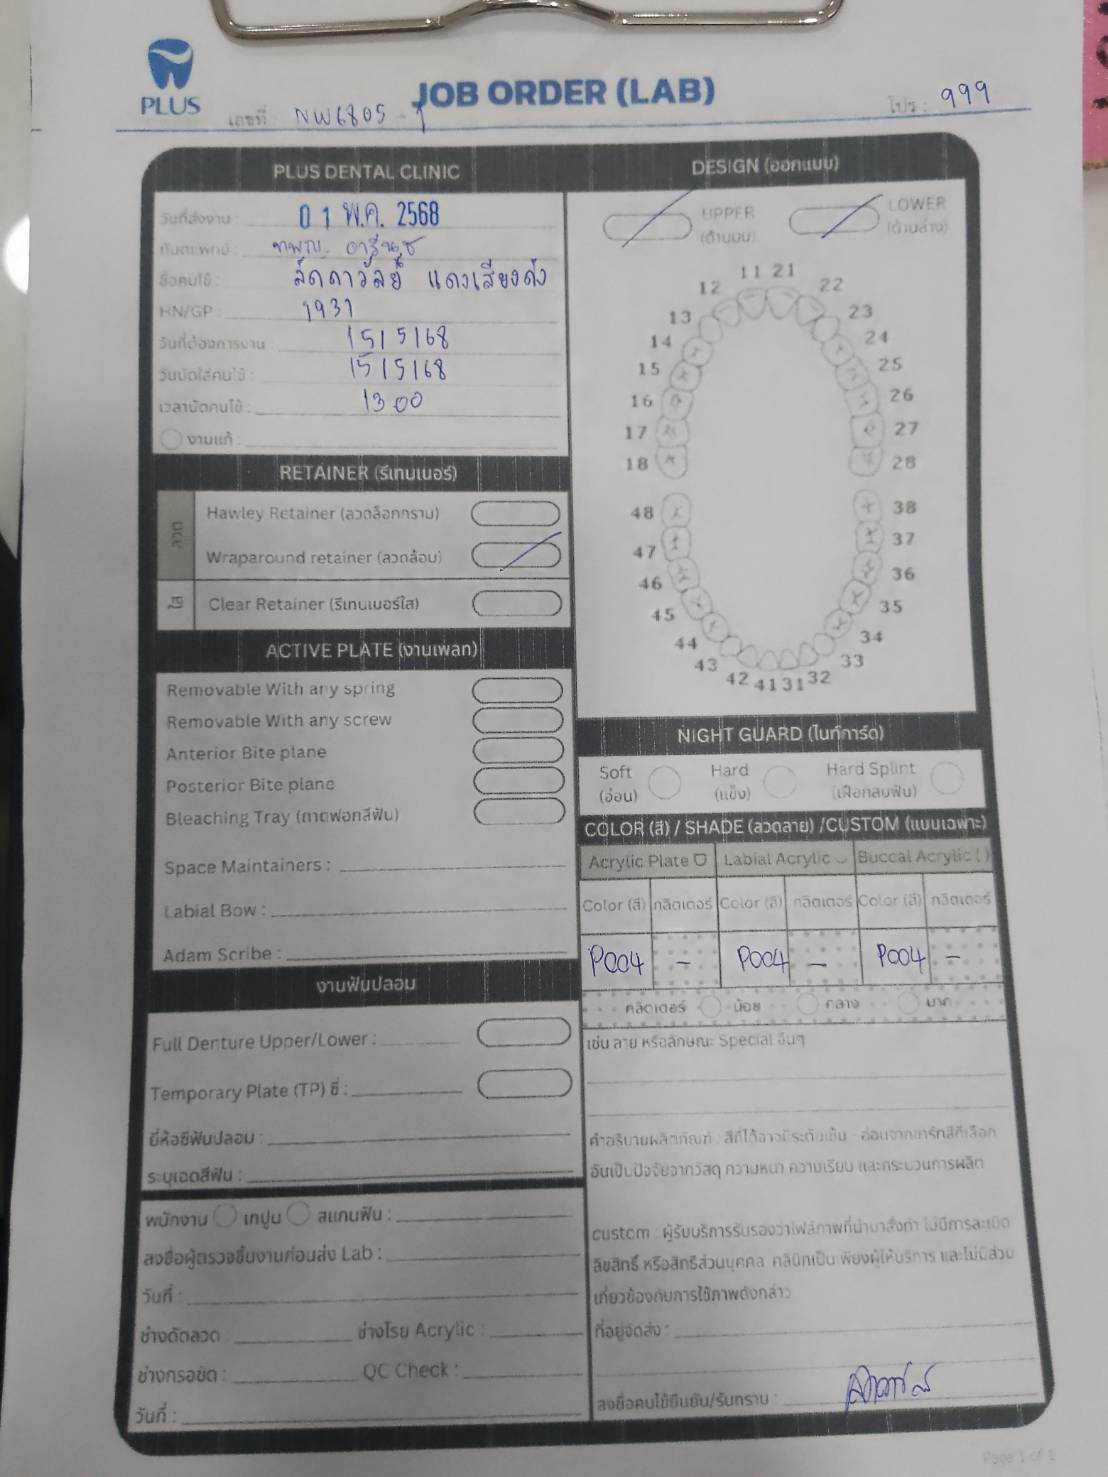 PLUS
JOB ORDER (LAB)
เลขที่ NW6805 - 1
โปร : 999
PLUS DENTAL CLINIC
วันที่ส่งงาน : 0 1 พ.ค. 2568
ทันตแพทย์ : ทพญ.
ชื่อคนไข้ : ลัดดาวัลย์ แดงเสียงดัง
HN/GP : 1931
วันที่ต้องการงาน : 15/5/68
วันนัดใส่คนไข้ : 15/5/68
เวลานัดคนไข้ : 13 00
งานแก้ :
RETAINER (รีเทนเนอร์)
ลวด
Hawley Retainer (ลวดล็อกกราม)
Wraparound retainer (ลวดล้อม)
ใส
Clear Retainer (รีเทนเนอร์ใส)
ACTIVE PLATE (งานเพลท)
Removable With any spring
Removable With any screw
Anterior Bite plane
Posterior Bite plane
Bleaching Tray (ถาดฟอกสีฟัน)
Space Maintainers :
Labial Bow :
Adam Scribe :
งานฟันปลอม
Full Denture Upper/Lower :
Temporary Plate (TP) ซี่ :
ยี่ห้อซี่ฟันปลอม :
ระบุเฉดสีฟัน :
พนักงาน เทปูน สแกนฟัน :
ลงชื่อผู้ตรวจชิ้นงานก่อนส่ง Lab :
วันที่ :
ช่างดัดลวด : ช่างโรย Acrylic :
ช่างกรอขัด : QC Check :
วันที่ :
DESIGN (ออกแบบ)
UPPER
(ด้านบน)
LOWER
(ด้านล่าง)
11 21
12 22
13 23
14 24
15 25
16 26
17 27
18 28
48 38
47 37
46 36
45 35
44 34
43 33
42 41 31 32
NIGHT GUARD (ไนท์การ์ด)
Soft Hard Hard Splint
(อ่อน) (แข็ง) (เฝือกสบฟัน)
COLOR (สี) / SHADE (ลวดลาย) /CUSTOM (แบบเฉพาะ)
Acrylic Plate Labial Acrylic Buccal Acrylic ( )
Color (สี) กลิตเตอร์ Color (สี) กลิตเตอร์ Color (สี) กลิตเตอร์
P004 - P004 - P004 -
กลิตเตอร์ น้อย กลาง มาก
เช่น ลาย หรือลักษณะ Special อื่นๆ
คำอธิบายผลิตภัณฑ์ : สีที่ได้อาจมีระดับเข้ม - อ่อนจากการ์ดสีที่เลือก
อันเป็นปัจจัยจากวัสดุ ความหนา ความเรียบ และกระบวนการผลิต
custom : ผู้รับบริการรับรองว่าไฟล์ภาพที่นำมาสั่งทำ ไม่มีการละเมิด
ลิขสิทธิ์ หรือสิทธิส่วนบุคคล คลินิกเป็นเพียงผู้ให้บริการ และไม่มีส่วน
เกี่ยวข้องกับการใช้ภาพดังกล่าว
ที่อยู่จัดส่ง :
ลงชื่อคนไข้ยืนยัน/รับทราบ :
Page 1 of 1